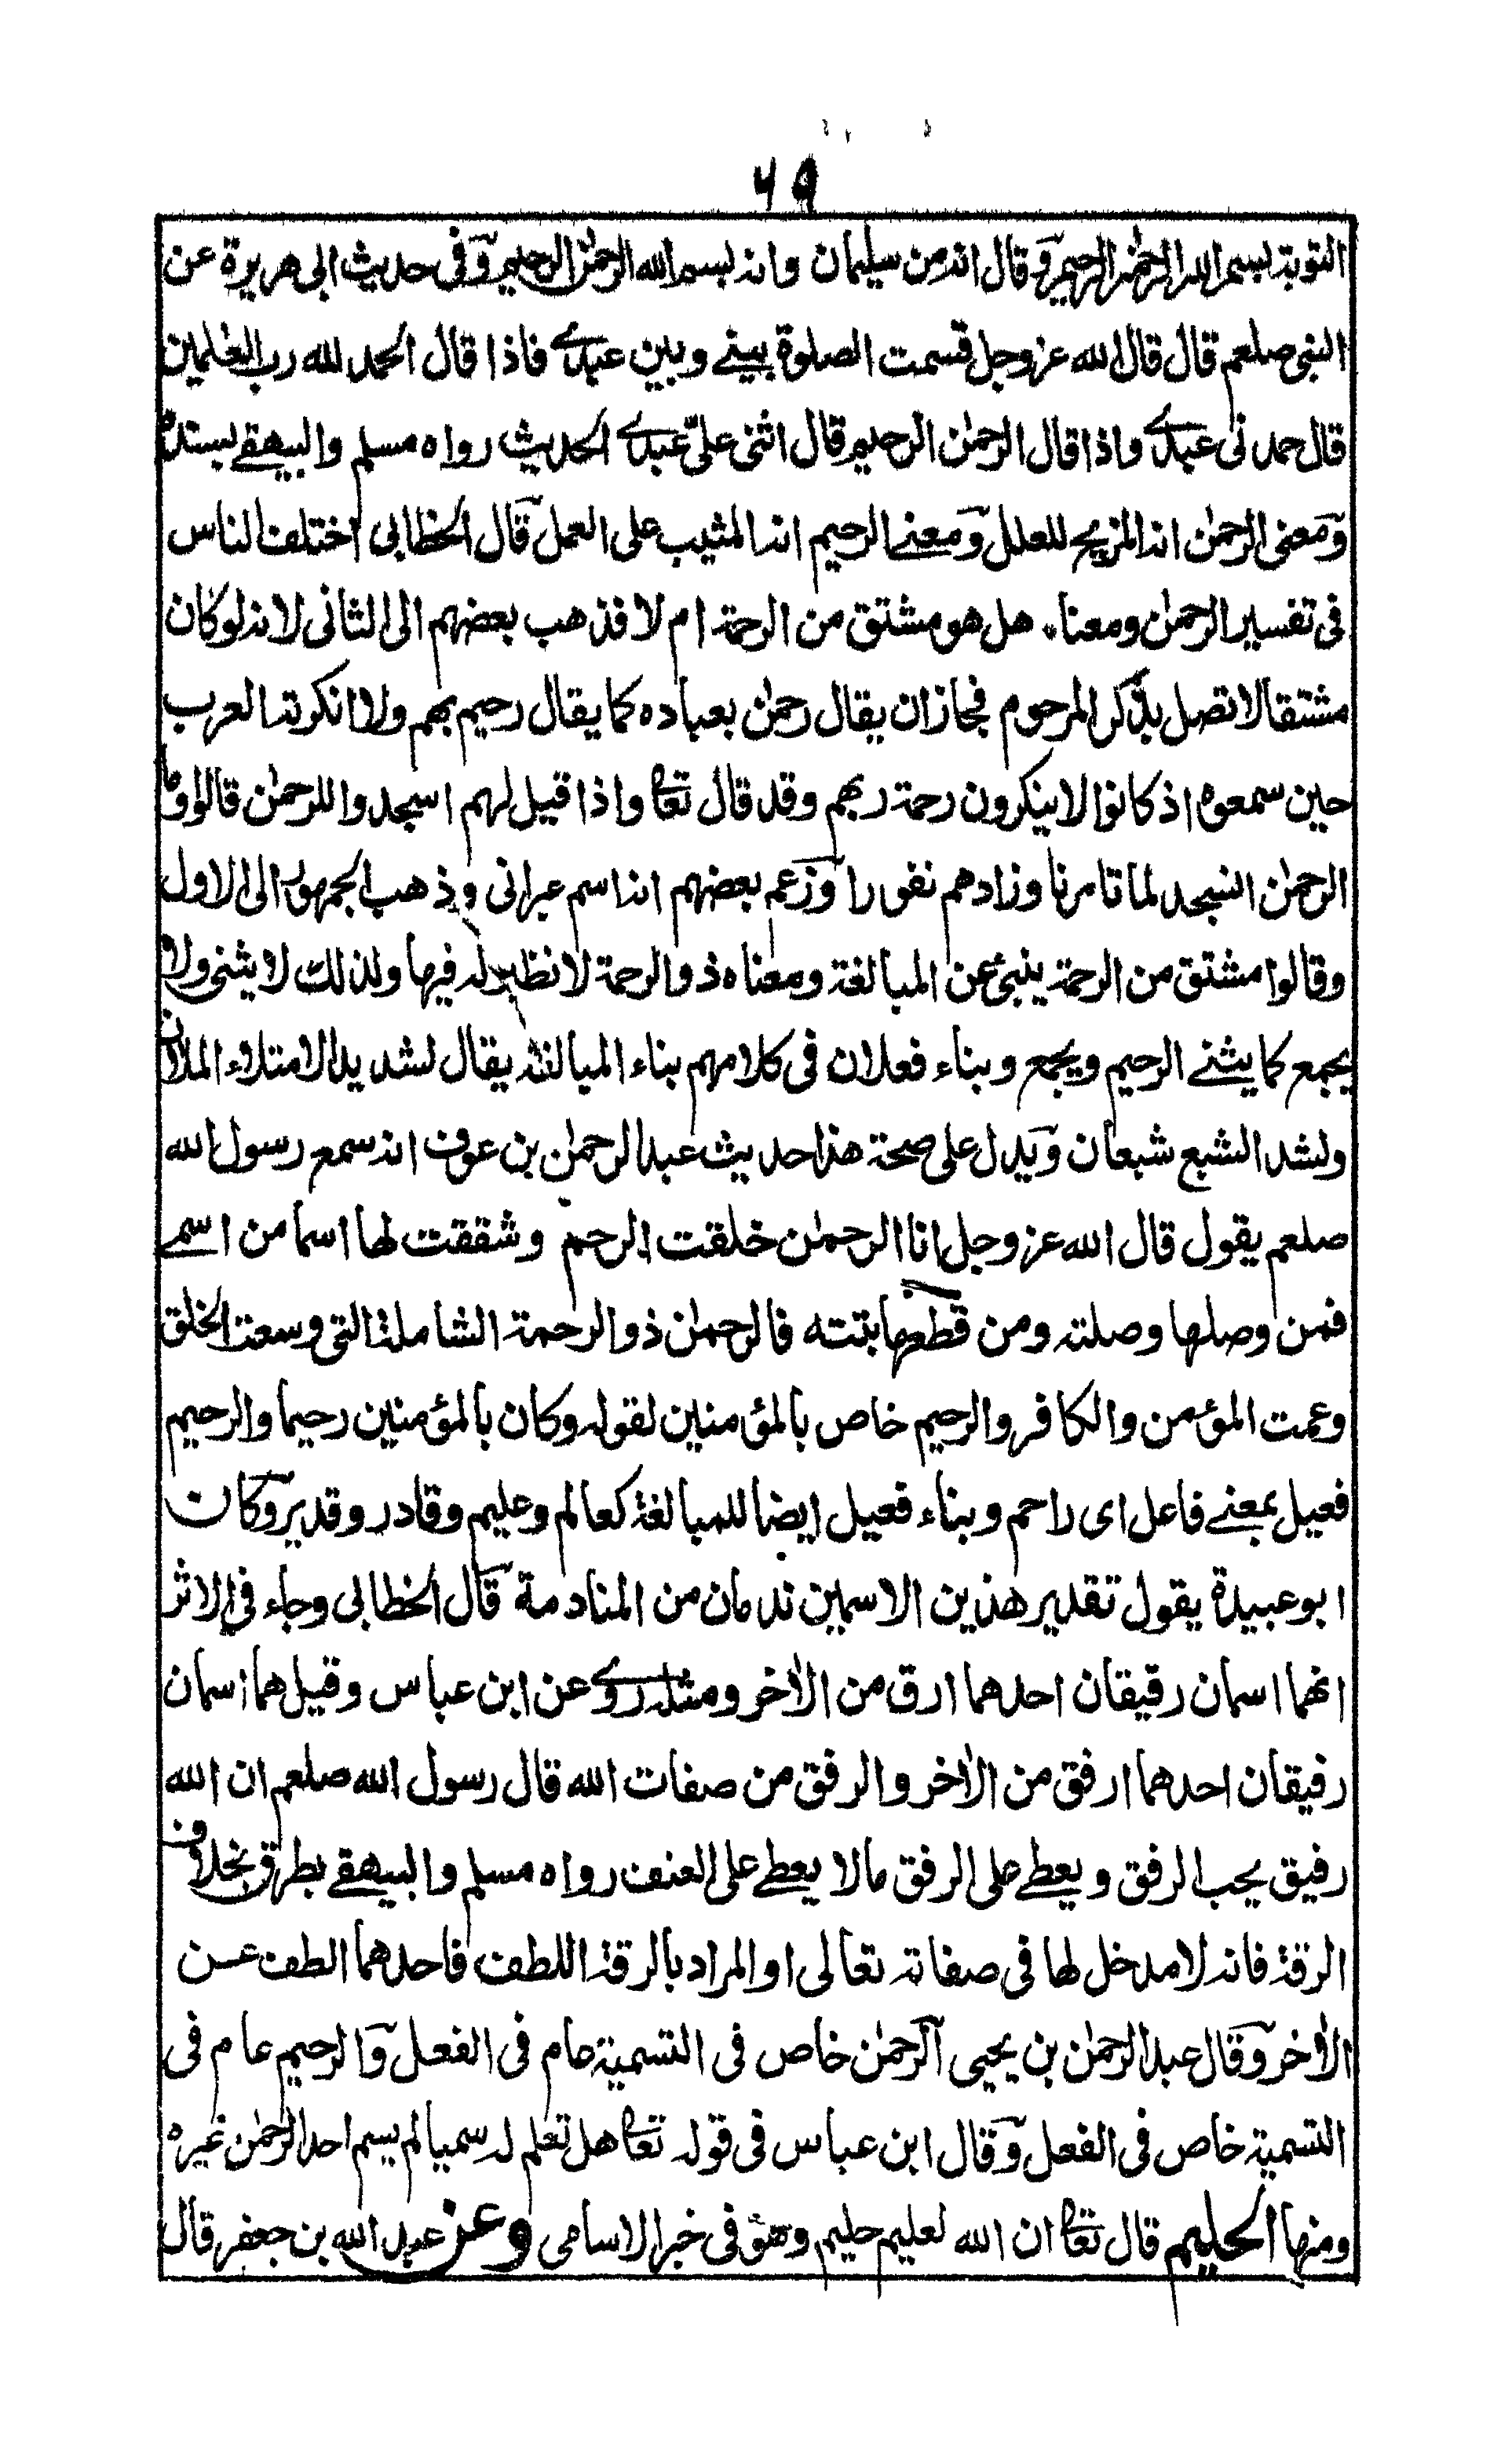 ٦٩
التوبة بسم الله الرحمن الرحيم وقال انه من سليمان وانه بسم الله الرحمن الرحيم وفى حديث ابى هريرة عن
النبى صلعم قال قال الله عز وجل قسمت الصلوة بينے وبين عبدے فاذا قال الحمد لله رب العلمين
قال حمدنى عبدے واذا قال الرحمن الرحيم قال اثنى علىّ عبدے الحديث رواه مسلم والبيهقے بسنده
ومعنى الرحمن انه المزيح للعلل ومعنے الرحيم انه المثيب على العمل قال الخطابى اختلف الناس
فى تفسير الرحمن ومعناه هل هو مشتق من الرحمة ام لا فذهب بعضهم الى الثانى لانه لو كان
مشتقا لاتصل بذكر المرحوم فجاز ان يقال رحمن بعباده كما يقال رحيم بهم ولا انكرته العرب
حين سمعوه اذ كانوا لا ينكرون رحمة ربهم وقد قال تعا واذا قيل لهم اسجدوا للرحمن قالوا وما
الرحمن انسجد لما تامرنا وزادهم نفورا وزعم بعضهم انه اسم عبرانى وذهب الجمهور الى الاول
وقالوا مشتق من الرحمة ينبئ عن المبالغة ومعناه ذو الرحمة لا نظير له فيها ولذلك لا يثنى ولا
يجمع كما يثنے الرحيم ويجمع وبناء فعلان فى كلامهم بناء المبالغة يقال لشديد الامتلاء الملان
ولشد الشبع شبعان ويدل على صحة هذا حديث عبد الرحمن بن عوف انه سمع رسول الله
صلعم يقول قال الله عز وجل انا الرحمن خلقت الرحم وشققت لها اسما من اسمے
فمن وصلها وصلته ومن قطعها بتته فالرحمن ذو الرحمة الشاملة التى وسعت الخلق
وعمت المؤمن والكافر والرحيم خاص بالمؤمنين لقوله وكان بالمؤمنين رحيما والرحيم
فعيل بمعنے فاعل اى راحم وبناء فعيل ايضا للمبالغة كعالم وعليم وقادر وقدير وكان
ابو عبيدة يقول تقدير هذين الاسمين ندمان من المنادمة قال الخطابى وجاء فى الاثر
انهما اسمان رقيقان احدهما ارق من الاٰخر ومثله روے عن ابن عباس وقيل هما اسمان
رفيقان احدهما ارفق من الاٰخر والرفق من صفات الله قال رسول الله صلعم ان الله
رفيق يحب الرفق ويعطے على الرفق مالا يعطے على العنف رواه مسلم والبيهقے بطرق بخلاف
الرقة فانه لا مدخل لها فى صفاته تعالى او المراد بالرقة اللطف فاحدهما الطف عن
الاٰخر وقال عبد الرحمن بن يحيى الرحمن خاص فى التسمية عام فى الفعل والرحيم عام فى
التسمية خاص فى الفعل وقال ابن عباس فى قوله تعا هل تعلم له سميا لم يسم احد الرحمن غيره
ومنها الحليم قال تعا ان الله لعليم حليم وهو فى خبر الاسامى وعن عبد الله بن جعفر قال